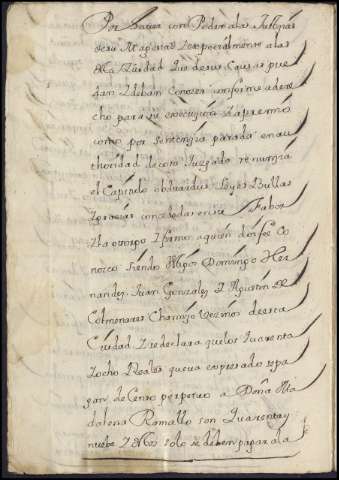 Por hacer con Poder a las Justizias
de su Magestad Y especialmente a las
Ciudad Que de sus Causas pue
dan Y deban Conoser conforme a dere
cho para su execuçion Y apremio
como por sentenzia pasada en au
thoridad de cosa Juzgado renunzia
el Capitulo obduardus leyes Bullas
Y grasias consedidas en su Fabor
Y la otorgo Y firmo a quien doi fee Co
nosco siendo testigos Domingo Her
nandez Juan Gonzales Y Agustin
Colmenares Vezinos de esta
Ciudad Y se declara que los quarenta
Y ocho Reales que va expresado se pa
gan de Censo perpetuo a Doña Ma
dalena Ramallo son quarenta y
nuebe Y Mas solo se deben pagar a la